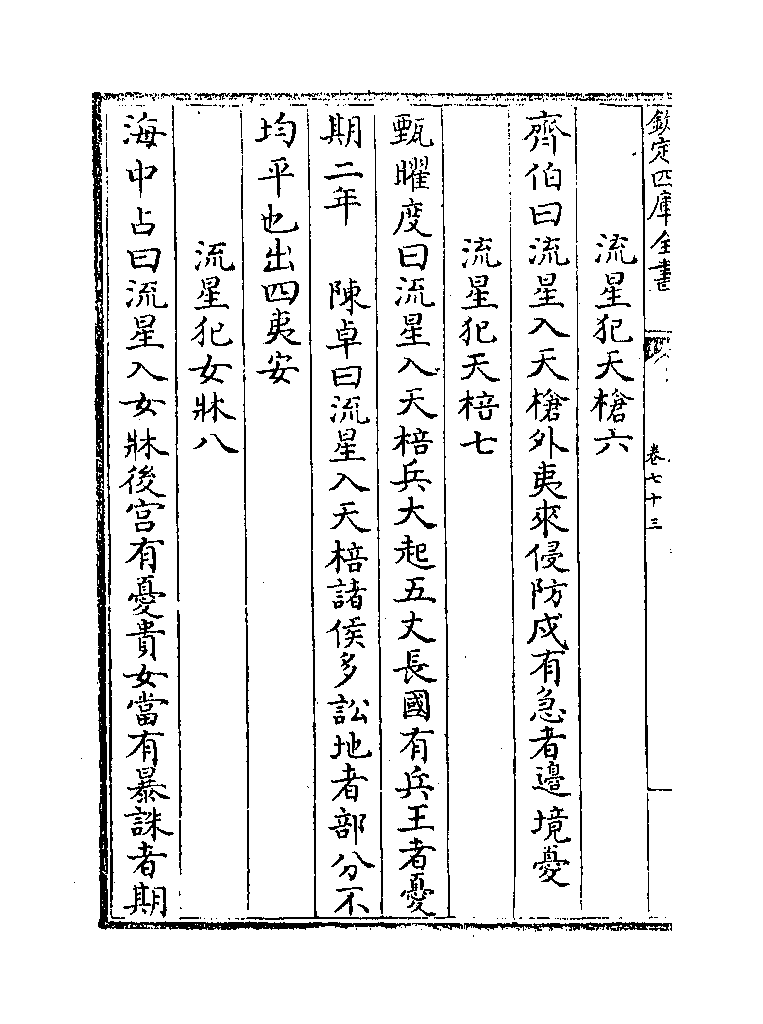 欽定四庫全書
卷七十三
流星犯天槍六
齊伯曰流星入天槍外夷來侵防戍有急者邊境憂
流星犯天棓七
甄曜度曰流星入天棓兵大起五丈長國有兵王者憂
期二年　陳卓曰流星入天棓諸侯多訟地者部分不
均平也出四夷安
流星犯女牀八
海中占曰流星入女牀後宫有憂貴女當有暴誅者期